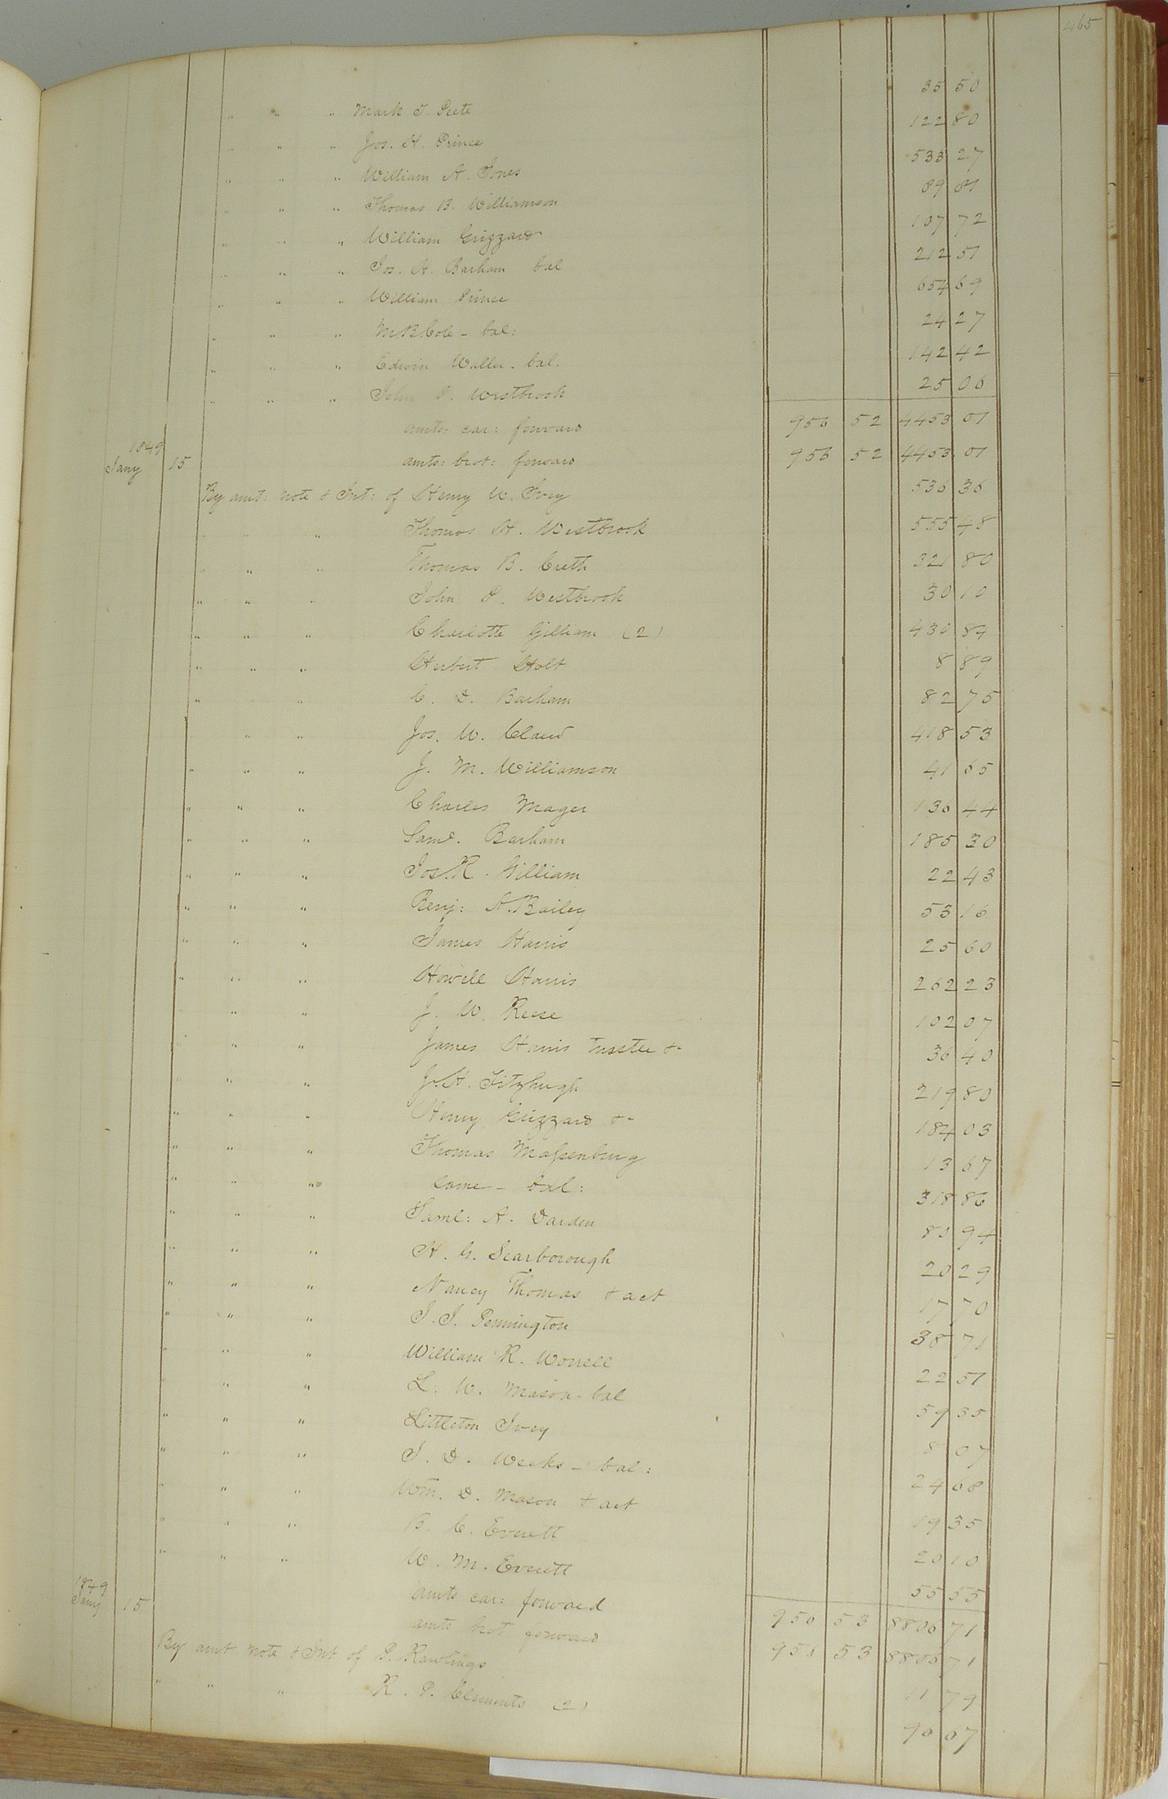 465
" " " Mark T. Peete 35 50
" " " Jos. H. Prince 122 80
" " " William A. Jones 533 27
" " " Thomas B. Williamson 89 81
" " " William Grizzard 107 72
" " " Jos. H. Barham bal 212 51
" " " William Prince 654 69
" " " M B Cole - bal: 24 27
" " " Edwin Waller - bal. 142 42
" " " John P. Westbrook 25 06
amts car: forward 956 52 4453 01
1849 Jany 15 amts: brot: forward 956 52 4453 01
By amt: note & Int: of Henry W. Ivey 536 36
" " " Thomas H. Westbrook 555 48
" " " Thomas B. Creth 321 80
" " " John P. Westbrook 30 10
" " " Charlotte Gilliam (2) 430 84
" " " Herbert Holt 8 89
" " C. D. Barham 82 75
" " Jos. W. Claud 418 53
" " " J. M. Williamson 41 65
" " " Charles Mager 136 44
" " " Saml. Barham 185 30
" " " Jos. R. Gilliam 22 43
" " " Benj: A. Bailey 53 16
" " " James Harris 25 60
" " " Howell Harris 262 23
" " J. W. Reese 102 07
" " James Harris trustee &- 36 40
" " J. H. Fitzhugh 219 80
" " " Henry Grizzard &- 184 03
" " " Thomas Massenburg 13 67
" " " Same - bal: 318 86
" " " Saml: A. Darden 80 94
" " " H. G. Scarborough 20 29
" " " Nancy Thomas & act 17 70
" " " J. J. Pennington 38 71
" " William R. Worrell 22 51
" " L. W. Mason - bal 59 35
" " " Littleton Ivey 8 07
" " " J. D. Weeks - bal: 24 68
" " Wm. D. Mason & act 19 35
" " " B. C. Everett 20 10
" " " W. M. Everett 55 55
amts car: forward 956 53 8806 71
1849 Jany 15 amts brot forward 956 53 8806 71
By amt note & Int of B. Rawlings 11 79
" " " R. P. Clements (2) 90 07